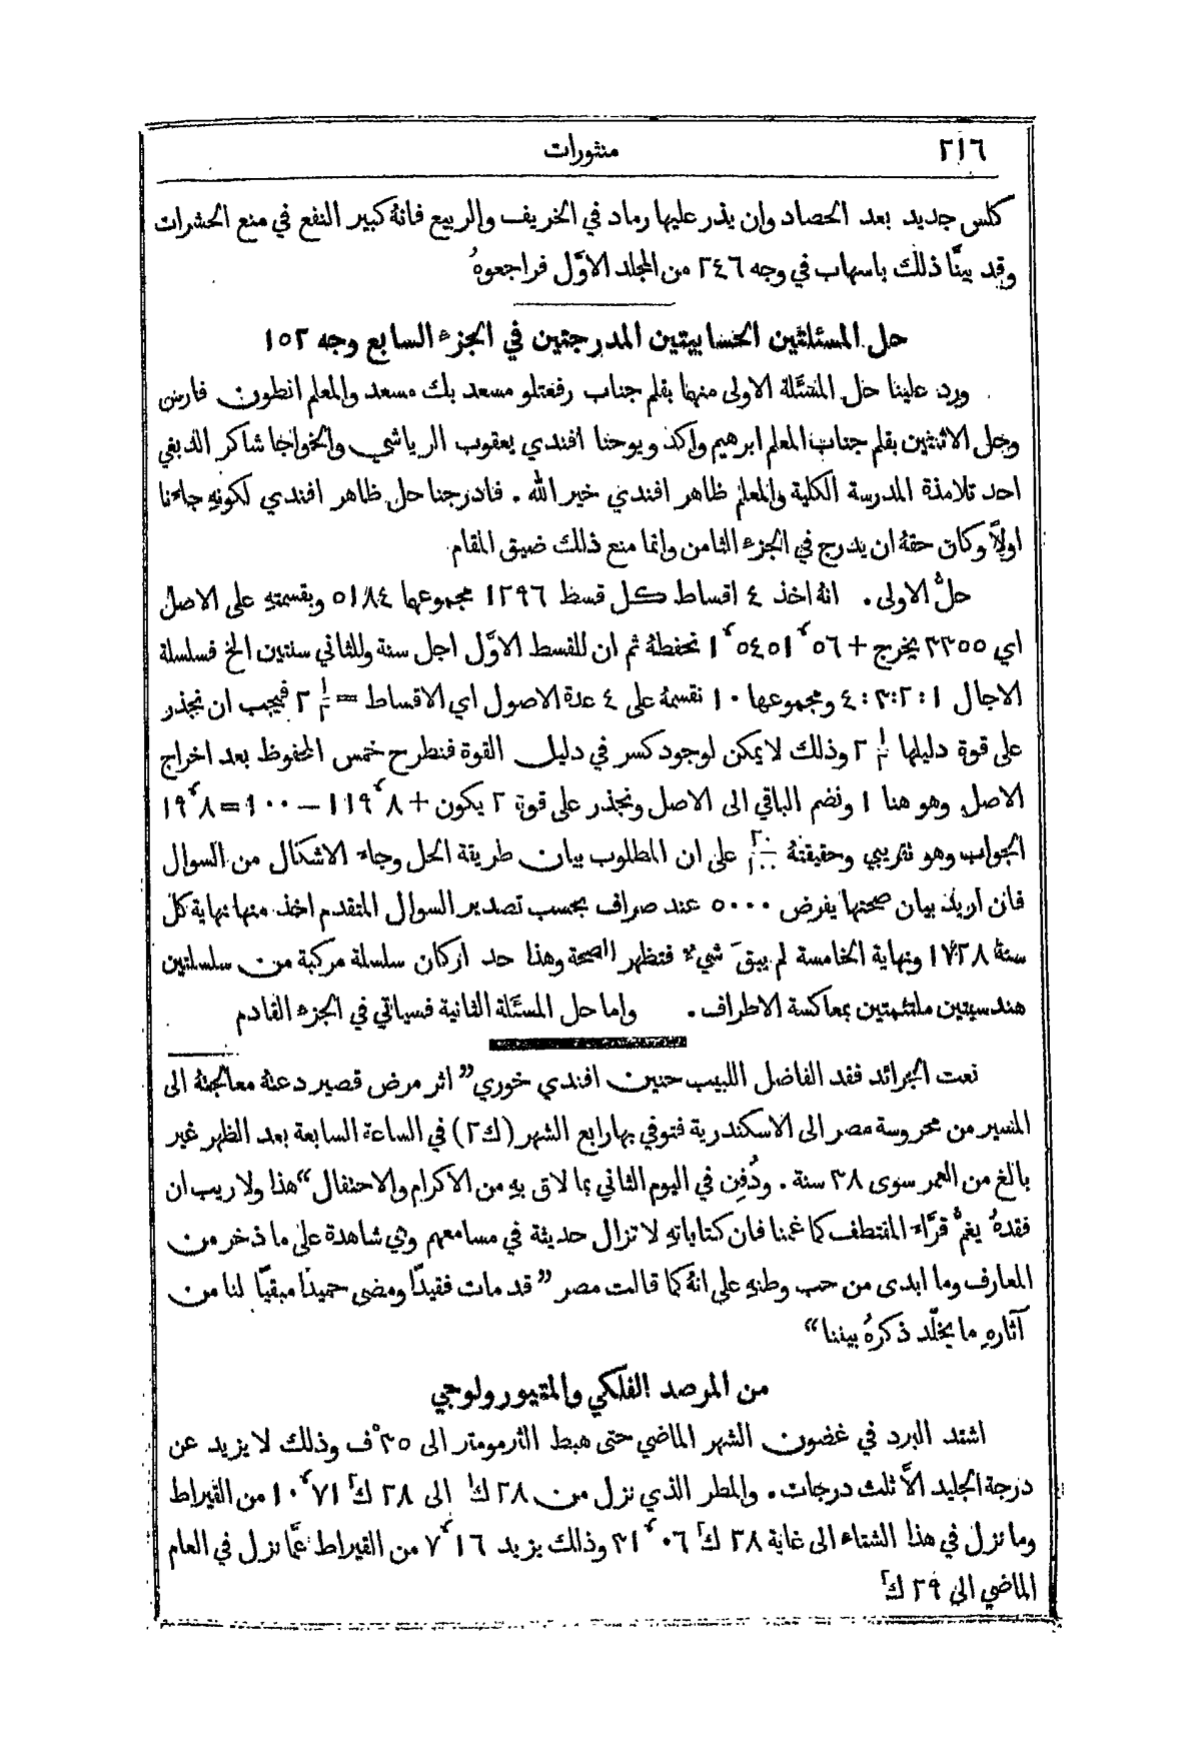 ٢١٦
منثورات
كلس جديد بعد الحصاد وان يذر عليها رماد في الخريف والربيع فانهُ كبير النفع في منع الحشرات
وقد بينَّا ذلك باسهاب في وجه ٢٤٦ من المجلد الاوَّل فراجعوهُ
حل المسئلتين الحسابيتين المدرجتين في الجزء السابع وجه ١٥٢
ورد علينا حل المسَئلة الاولى منها بقلم جناب رفعتلو مسعد بك مسعد والمعلم انطون فارس
وحل الاثنتين بقلم جناب المعلم ابرهيم واكد ويوحنا افندي يعقوب الرياشي والخواجا شاكر الذبغي
احد تلامذة المدرسة الكلية والمعلم ظاهر افندي خير الله . فادرجنا حل ظاهر افندي لكونهِ جاءنا
اولًا وكان حقهُ ان يدرج في الجزء الثامن وانما منع ذلك ضيق المقام
حلُّ الاولى . انهُ اخذ ٤ اقساط كل قسط ١٢٩٦ مجموعها ٥١٨٤ وبقسمتهِ على الاصل
اي ٣٣٥٥ يخرج + ٥٦ ٬ ١٥٤٥١ ٬ نحفظهُ ثم ان للقسط الاوَّل اجل سنة وللثاني سنتين الخ فسلسلة
الاجال ١ : ٢ : ٣ : ٤ ومجموعها ١٠ نقسمهُ على ٤ عدة الاصول اي الاقساط = ½ ٢ فيجب ان نجذر
على قوة دليلها ½ ٢ وذلك لا يمكن لوجود كسر في دليل القوة فنطرح خمس المحفوظ بعد اخراج
الاصل وهو هنا ١ ونضم الباقي الى الاصل ونجذر على قوة ٢ يكون + ٨ ٬ ١١٩ – ١٠٠ = ٨ ٬ ١٩
الجواب وهو تقريبي وحقيقتهُ ٢٠/١٠٠ على ان المطلوب بيان طريقة الحل وجاء الاشكال من السوال
فان اريد بيان صحتها يفرض ٥٠٠٠ عند صراف بحسب تصدير السوال المتقدم اخذ منها نهاية كل
سنة ١٧٢٨ ونهاية الخامسة لم يبقَ شيء فتظهر الصحة وهذا حد اركان سلسلة مركبة من سلسلتين
هندسيتين ملتئمتين بمعاكسة الاطراف . واما حل المسَئلة الثانية فسياتي في الجزء القادم
نعت الجرائد فقد الفاضل اللبيب حنين افندي خوري ” اثر مرض قصير دعتهُ معالجتهُ الى
المسير من محروسة مصر الى الاسكندرية فتوفي بها رابع الشهر (ك٢) في الساعة السابعة بعد الظهر غير
بالغ من العمر سوى ٣٨ سنة . ودُفِن في اليوم الثاني بما لاق بهِ من الاكرام والاحتفال “ هذا ولا ريب ان
فقدهُ يغمُّ قرَّاء المقتطف كما غمنا فان كتاباتهِ لا تزال حديثة في مسامعهم وهي شاهدة على ما ذخر من
المعارف وما ابدى من حب وطنهِ على انهُ كما قالت مصر ” قد مات فقيدًا ومضى حميدًا مبقيًا لنا من
آثارهِ ما يخلّد ذكرهُ بيننا “
من المرصد الفلكي والمتيورولوجي
اشتد البرد في غضون الشهر الماضي حتى هبط الثرمومتر الى ٣٥°ف وذلك لا يزيد عن
درجة الجليد الَّا ثلث درجات . والمطر الذي نزل من ٢٨ ك١ الى ٢٨ ك٢ ٧١ ٬ ١٠ من القيراط
وما نزل في هذا الشتاء الى غاية ٢٨ ك٢ ٠٦ ٬ ٢١ وذلك يزيد ١٦ ٬ ٧ من القيراط عمَّا نزل في العام
الماضي الى ٢٩ ك٢